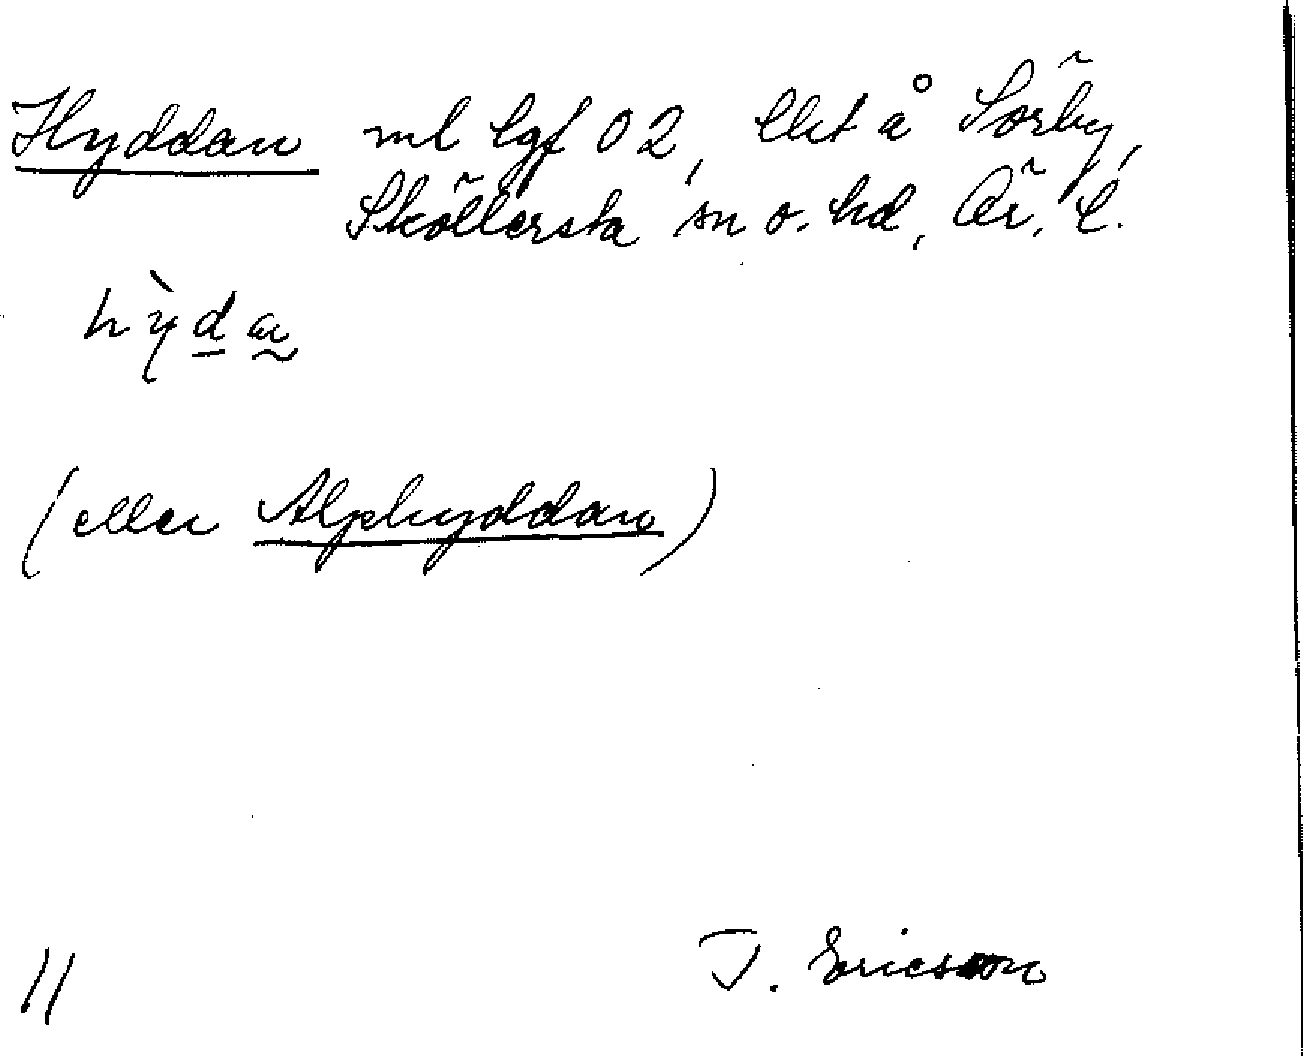 Hyddan ml lgf 02, lht å Sörby,
Sköllersta sn o. hd, Ör. l.
hỳda
(eller Alphyddan)
11
J. Ericsson